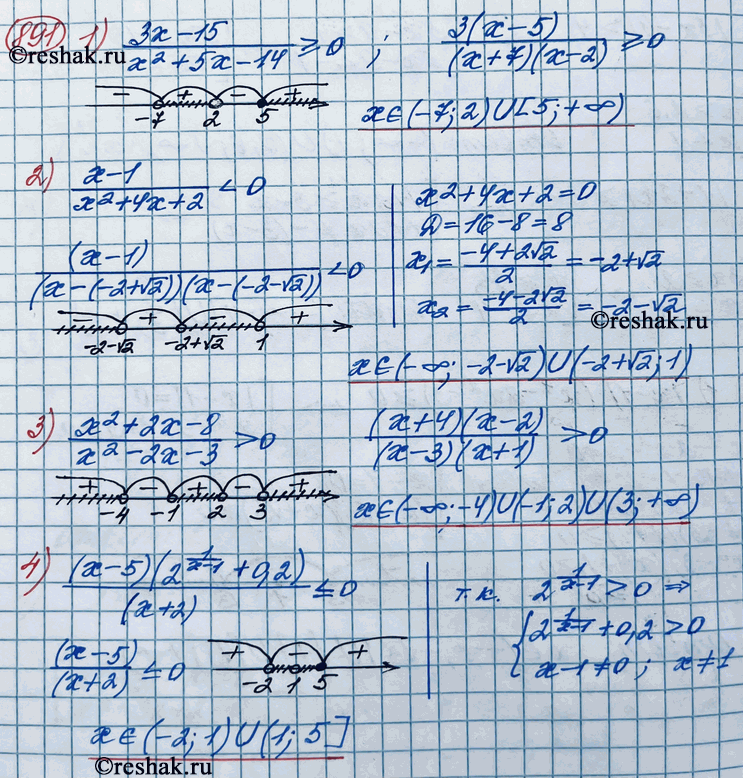 891 1) (3x-15)/(x²+5x-14) ≥ 0 ; 3(x-5)/((x+7)(x-2)) ≥ 0
©reshak.ru
©reshak.ru
- + - +
-7 2 5
x∈(-7; 2)∪[5; +∞)
2) (x-1)/(x²+4x+2) < 0
x²+4x+2=0
D=16-8=8
(x-1)/((x-(-2+√2))(x-(-2-√2))) < 0
x₁ = (-4+2√2)/2 = -2+√2
x₂ = (-4-2√2)/2 = -2-√2
©reshak.ru
- + - +
-2-√2 -2+√2 1
x∈(-∞; -2-√2)∪(-2+√2; 1)
3) (x²+2x-8)/(x²-2x-3) > 0
((x+4)(x-2))/((x-3)(x+1)) > 0
+ - + - +
-4 -1 2 3
x∈(-∞; -4)∪(-1; 2)∪(3; +∞)
4) ((x-5)(2^(1/(x-1))+0,2))/(x+2) ≤ 0
т.к. 2^(1/(x-1)) > 0 ⇒
{2^(1/(x-1))+0,2 > 0
x-1≠0 ; x≠1
(x-5)/(x+2) ≤ 0
+ - +
-2 1 5
x∈(-2; 1)∪(1; 5]
©reshak.ru